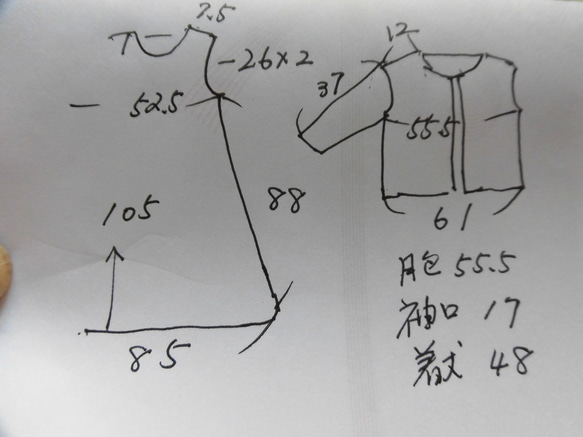 7.5
7
26×2
52.5
105
88
85
12
37
55.5
61
胞 55.5
袖口 17
着丈 48